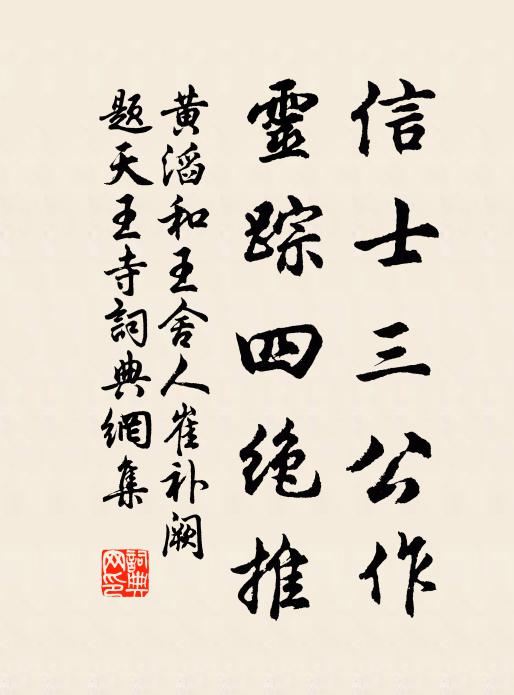 信士三公作
靈踪四绝推
黄滔和王舍人崔补阙
题天王寺詞典網集
詞典
网印